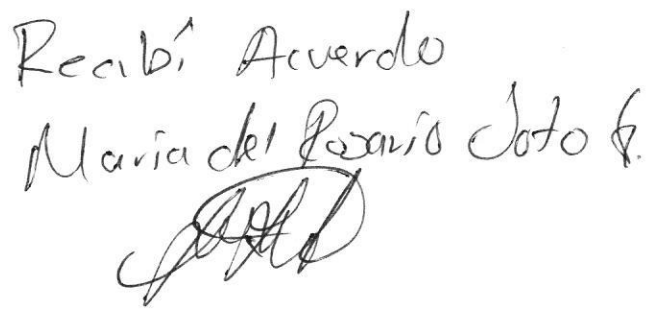 Recibí Acuerdo
Maria del Rosario Soto G.